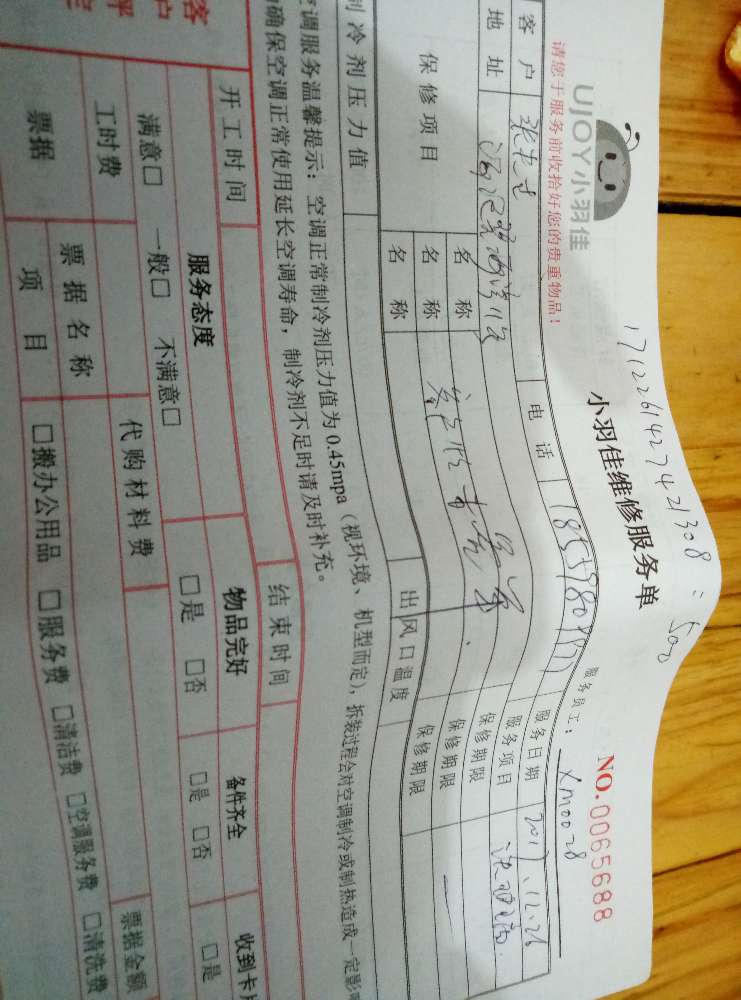 171226142742 1308 : 500
UJOY小羽佳
小羽佳维修服务单
NO.0065688
请您于服务前收拾好您的贵重物品！
服务员工： XM0028
客户
电话
服务日期 2017.12.26
地址
服务项目
保修项目
名称
保修期限
名称
保修期限
名称
保修期限
制冷剂压力值
出风口温度
空调服务温馨提示：空调正常制冷剂压力值为0.45mpa（视环境、机型而定），拆装过程会对空调制冷或制热造成一定影响
确保空调正常使用延长空调寿命，制冷剂不足时请及时补充。
开工时间
结束时间
客户
服务态度
物品完好
备件齐全
收到卡片
满意□ 一般□ 不满意□
□是 □否
□是 □否
□是
工时费
代购材料费
票据金额
票据
票据名称
项目
□搬办公用品 □服务费 □清洁费 □空调服务费 □清洗费